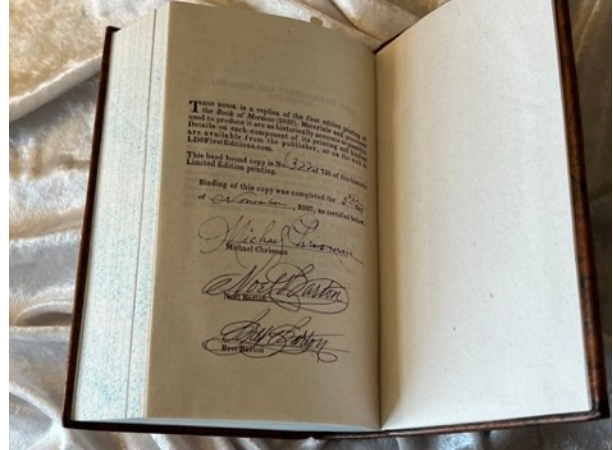 THIS BOOK is a replica of the first edition printing of
the Book of Mormon (1830). Materials and processes
used to produce it are as historically accurate as possible.
Details on each component of its printing and binding
are available from the publisher, or on the web at
LDSFirstEditions.com.
This hand bound copy is No. 322 of 750 of this
Limited Edition printing.
Binding of this copy was completed the day
of November, 2007, as certified below.
Michael Chrisman
Michael Chrisman
Noel Barton
Noel Barton
Bret Barton
Bret Barton